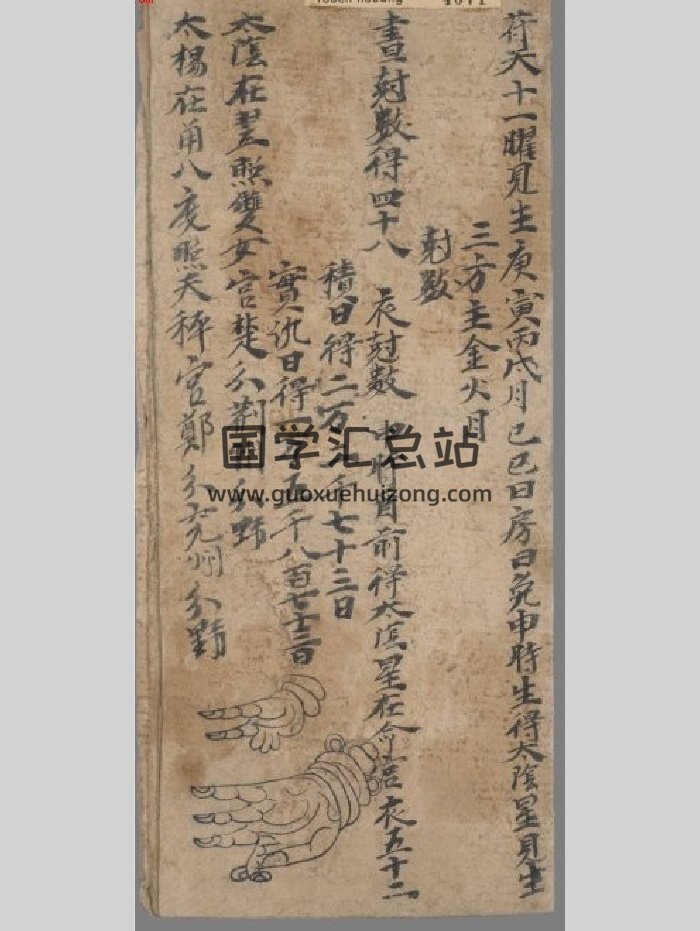 Touen-houang 4071
符天十一曜見生庚寅丙戌月己巳日房日兔申時生得太陰星見生
三方主金火月
尅數
晝尅數得四十八 夜尅數 申時首前得太陰星在命宮夜五十二
積日得二万六千七十三日
實沉日得一万五千八百七十三日
太陰在翌照雙女宮楚分荊州分野
太楊在角八度照天秤宮鄭分兗州分野
国学汇总站
www.guoxuehuizong.com